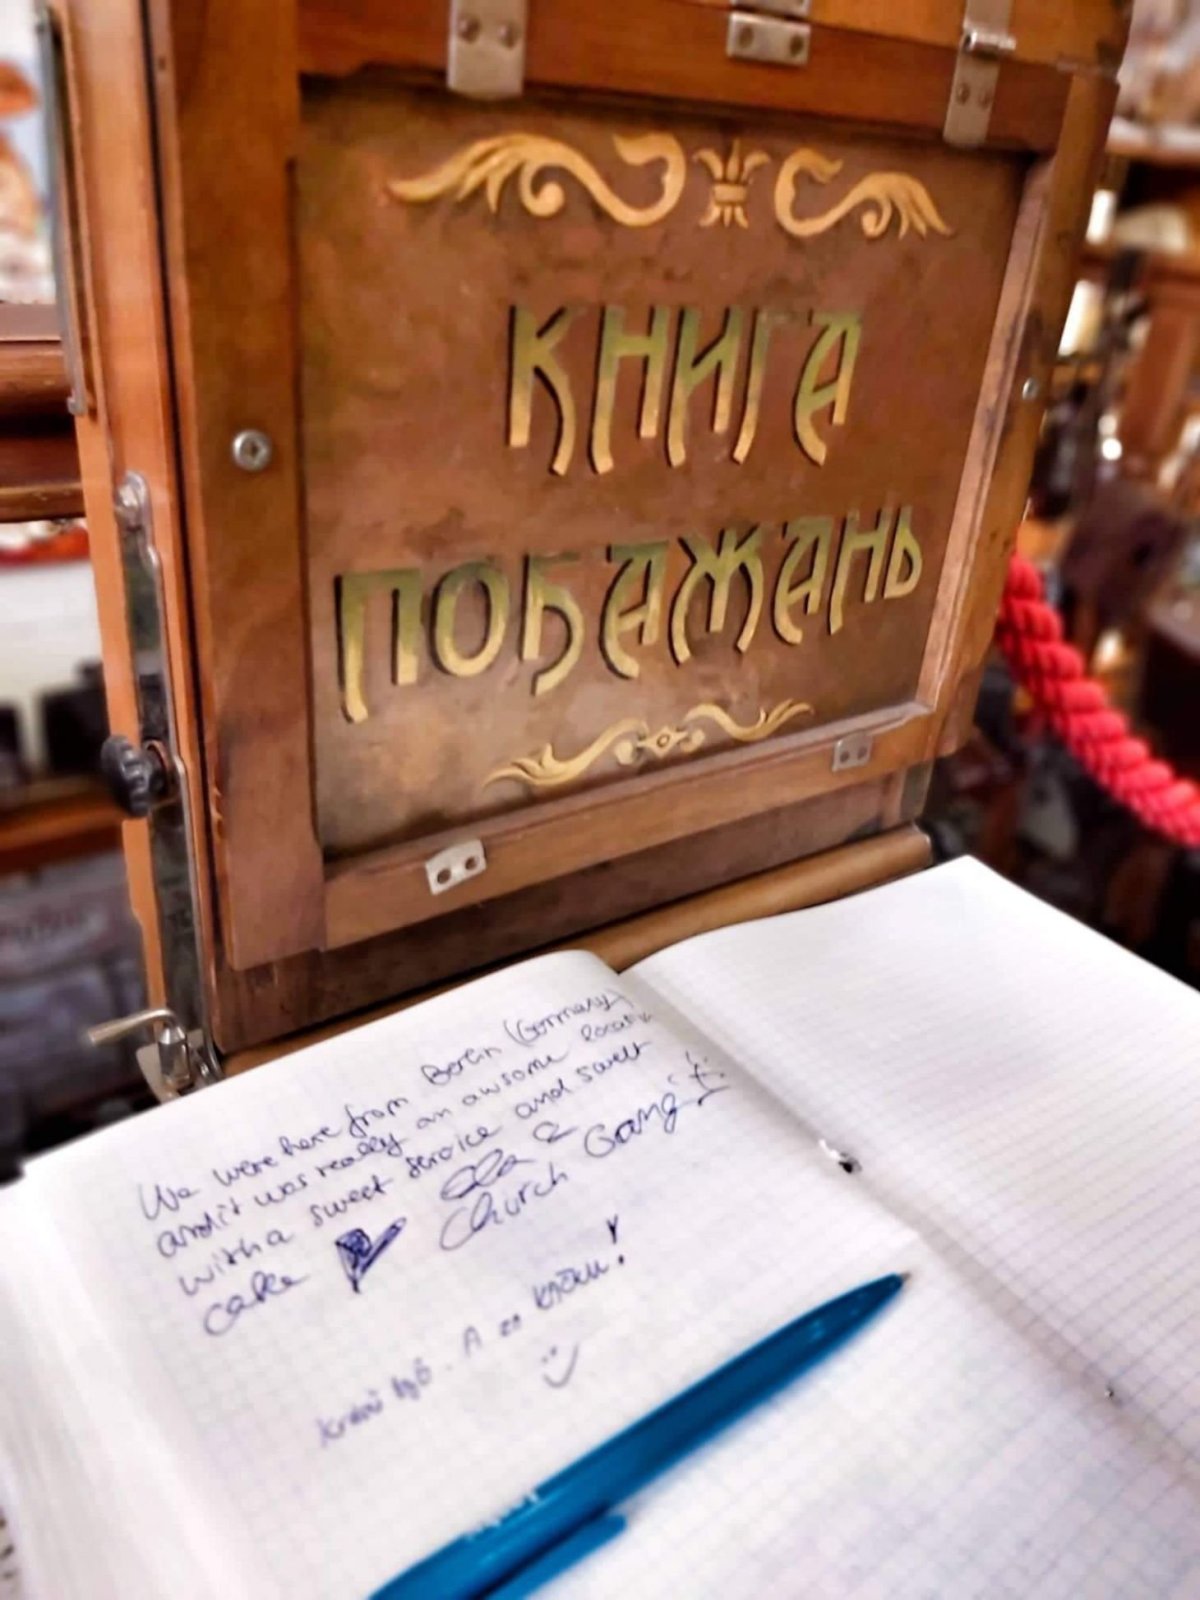 КНИГА
ПОБАЖАНЬ
We were here from Berlin (Germany)
and it was really an awsome
with a sweet service and sweet
cake
Church Gang
А